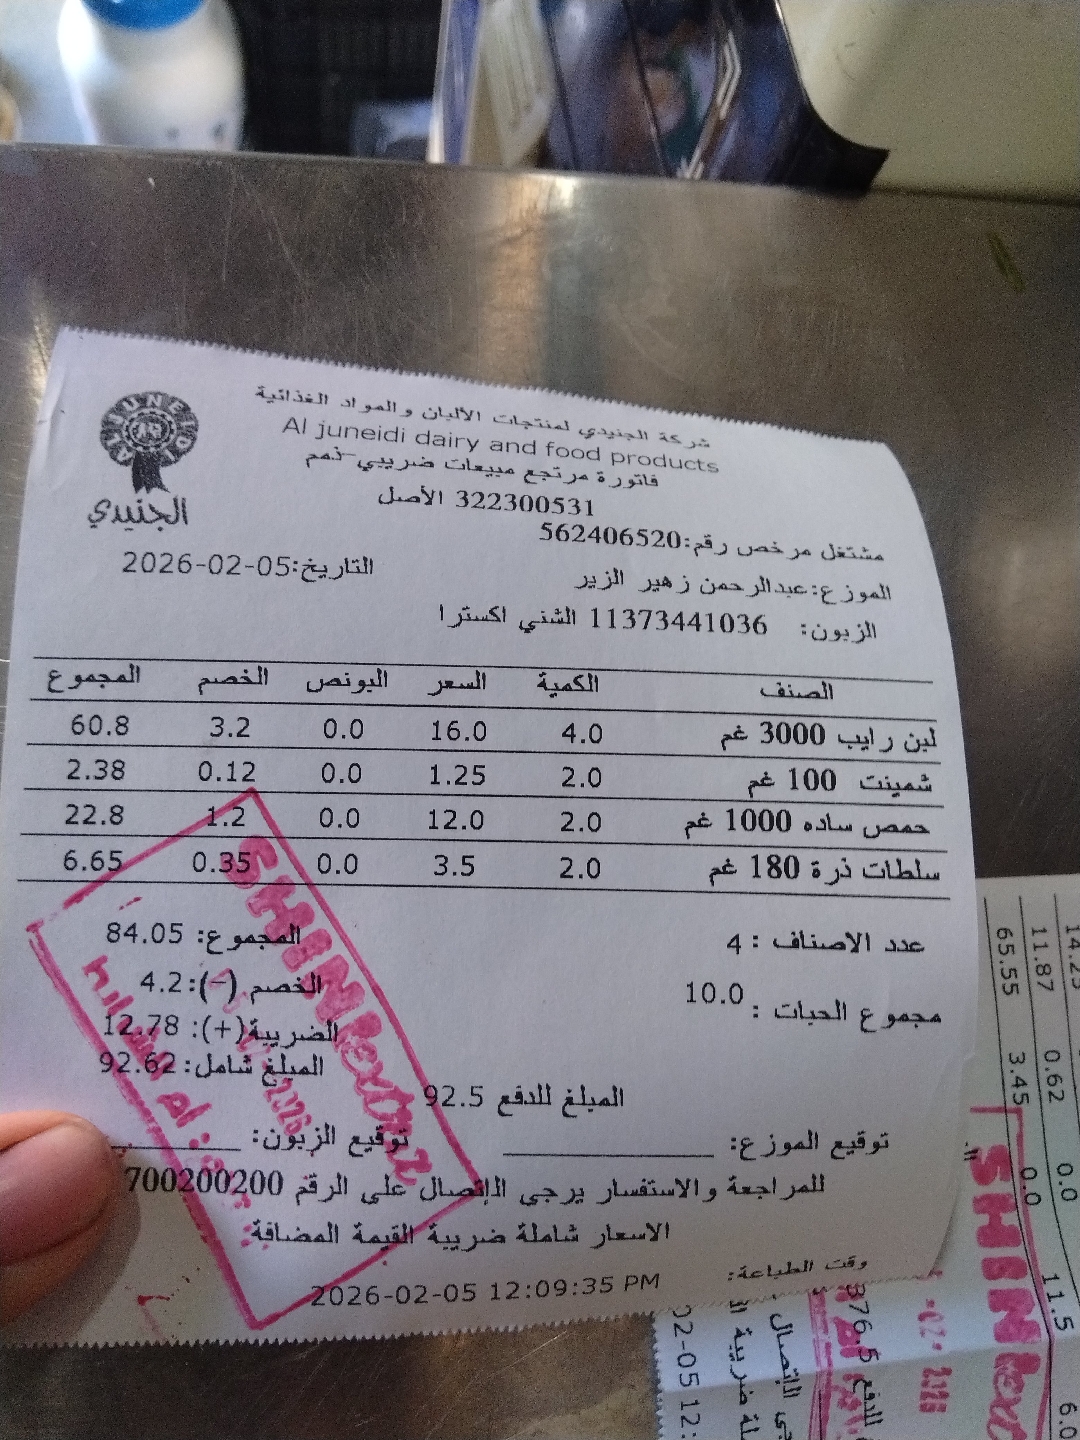 شركة الجنيدي لمنتجات الألبان والمواد الغذائية
Al juneidi dairy and food products
فاتورة مرتجع مبيعات ضريبي-ذمم
322300531 الأصل
AL JUNEIDI
الجنيدي
مشتغل مرخص رقم:562406520
التاريخ:2026-02-05
الموزع:عبدالرحمن زهير الزير
الزبون: 11373441036 الشني اكسترا
الصنف الكمية السعر البونص الخصم المجموع
لبن رايب 3000 غم 4.0 16.0 0.0 3.2 60.8
شمينت 100 غم 2.0 1.25 0.0 0.12 2.38
حمص ساده 1000 غم 2.0 12.0 0.0 1.2 22.8
سلطات ذرة 180 غم 2.0 3.5 0.0 0.35 6.65
عدد الاصناف : 4
المجموع: 84.05
مجموع الحبات : 10.0
الخصم (-):4.2
الضريبة(+): 12.78
المبلغ شامل: 92.62
المبلغ للدفع 92.5
توقيع الموزع:
توقيع الزبون:
للمراجعة والاستفسار يرجى الإتصال على الرقم 700200200
الاسعار شاملة ضريبة القيمة المضافة
وقت الطباعة:
2026-02-05 12:09:35 PM
SHINI extra
2026
14.25
11.87 0.62 0.0 11.5 6.0
65.55 3.45 0.0
SHINI ext
للدفع 376.5
02-05 12: